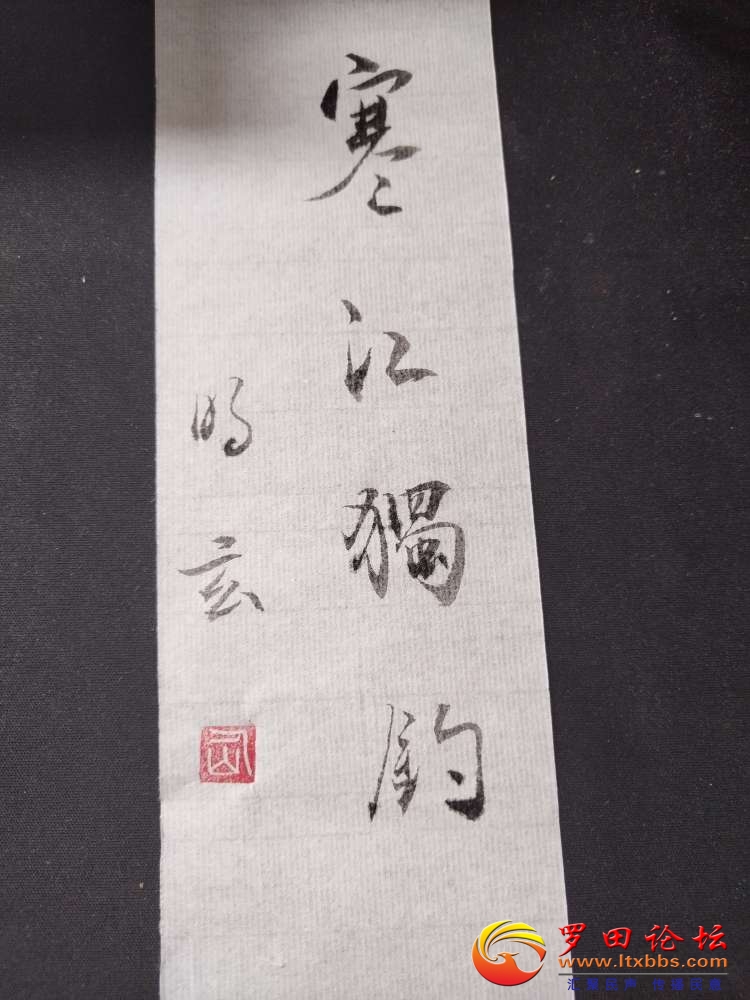 寒江獨釣
明玄
罗田论坛
www.ltxbbs.com